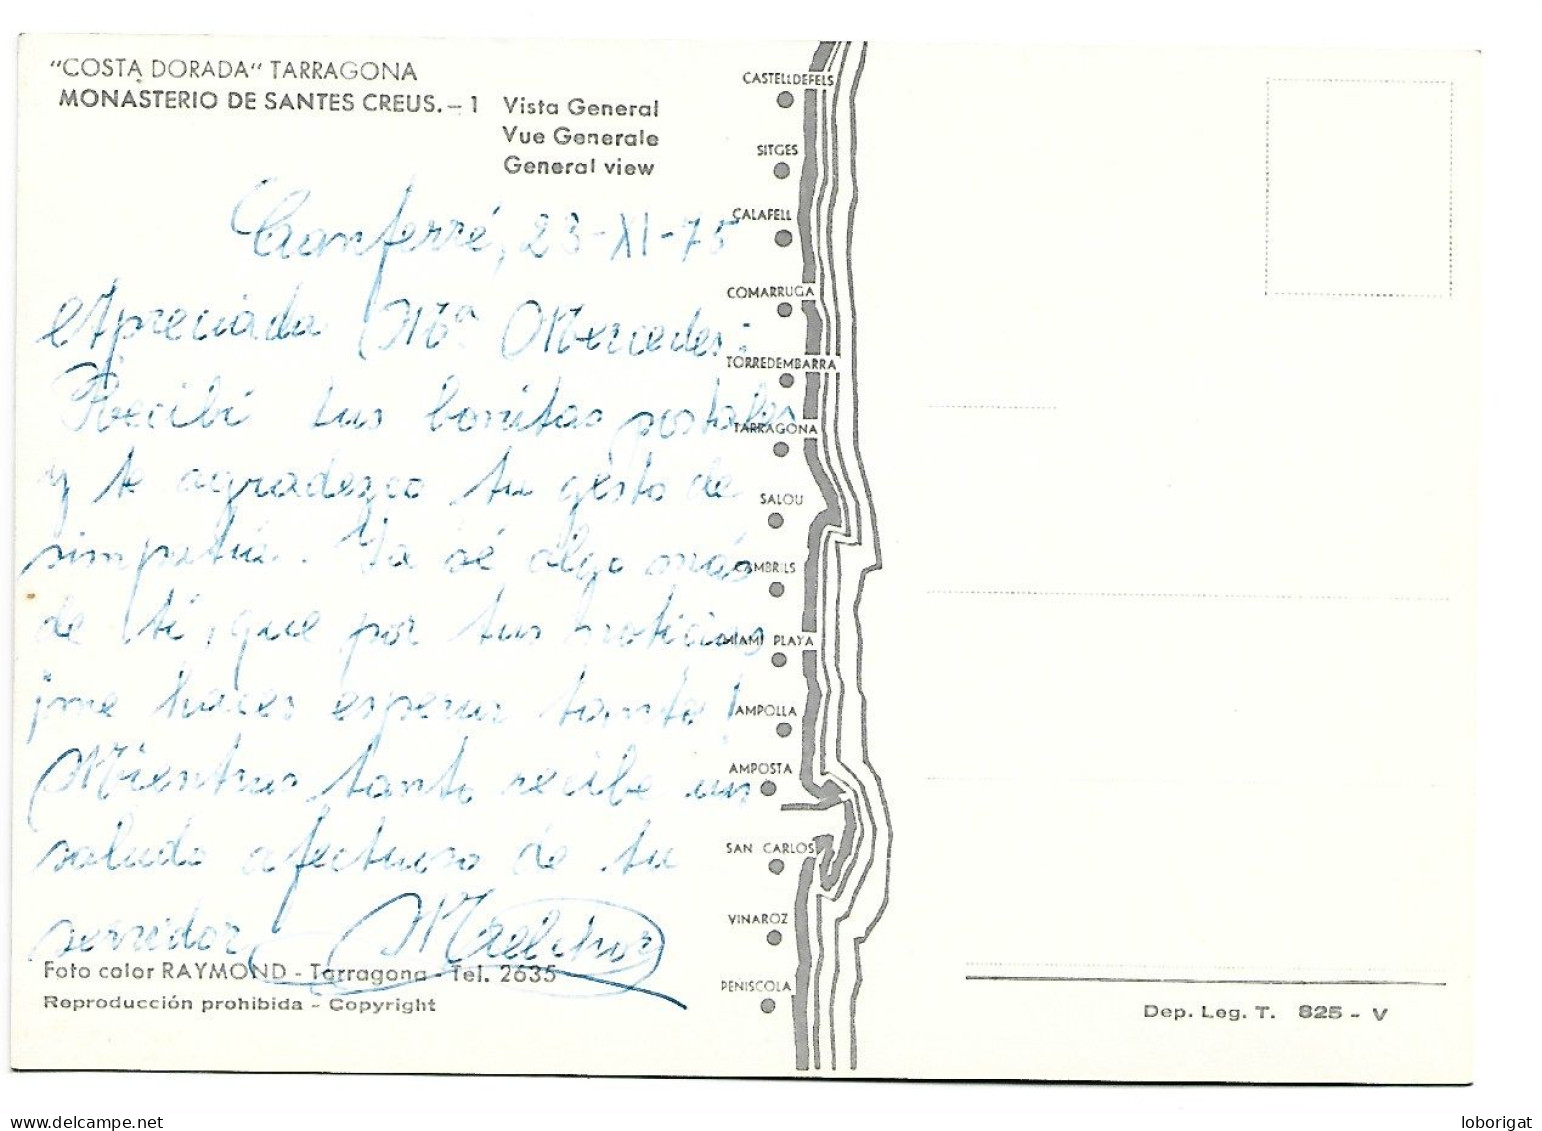 "COSTA DORADA" TARRAGONA
MONASTERIO DE SANTES CREUS. – 1 Vista General
Vue Generale
General view
Canferré, 23-XI-75
Apreciada Mª Mercedes:
Recibí tus bonitas postales
y te agradezco tu gesto de
simpatía. Ya sé algo más
de tí, que por tus noticias
¡me haces esperar tanto!
Mientras tanto recibe un
saludo afectuoso de tu
servidor Melchor
Foto color RAYMOND - Tarragona - Tel. 2635
Reproducción prohibida - Copyright
CASTELLDEFELS
SITGES
CALAFELL
COMARRUGA
TORREDEMBARRA
TARRAGONA
SALOU
CAMBRILS
MIAMI PLAYA
AMPOLLA
AMPOSTA
SAN CARLOS
VINAROZ
PEÑISCOLA
Dep. Leg. T. 825 - V
loborigat